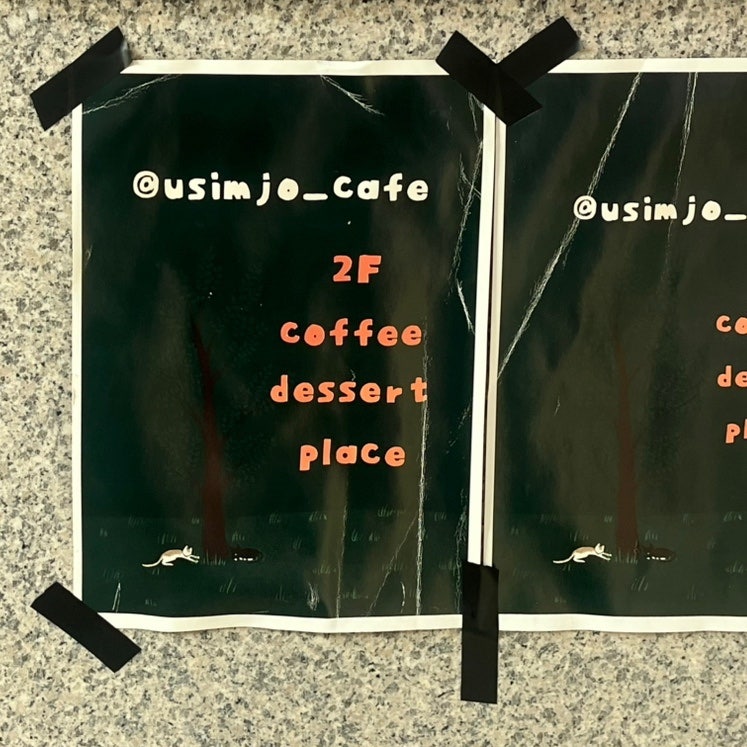 @usimjo_cafe
2F
coffee
dessert
place
@usimjo_
co
de
pl